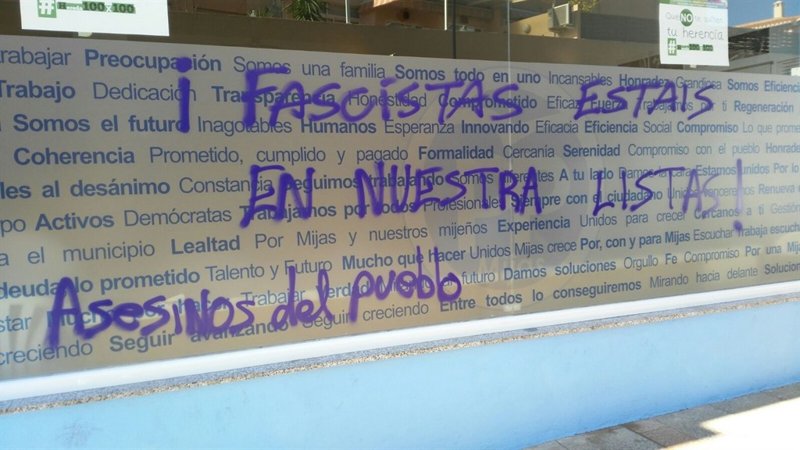 #100x100
Que NO te quiten
tu herencia
#100x100
trabajar Preocupación Somos una familia Somos todo en uno Incansables Honradez Grandiosa Somos Eficiencia
Trabajo Dedicació Transparencia Honestidad Comprometido Eficaz ti Regeneración
Somos el futuro Inagotables Humanos Esperanza Innovando Eficacia Eficiencia Social Compromiso Lo que prome
Coherencia Prometido, cumplido y pagado Formalidad Cercanía Serenidad Compromiso con el pueblo Honrade
les al desánimo Constancia Seguimos trabajando A tu lado Unidos Por lo
po Activos Demócratas Trabajamos por Profesionales Siempre con el ciudadano Renueva
a el municipio Lealtad Por Mijas y nuestros mijeños Experiencia Unidos para crecer Cercanos a ti Gestión
euda lo prometido Talento y Futuro Mucho que Hacer Unidos Mijas crece Por, con y para Mijas Escuchar Trabaja escuch
star Trabajar futuro Damos soluciones Orgullo Fe Compromiso Por una Mija
creciendo Seguir avanzando Seguir creciendo Entre todos lo conseguiremos Mirando hacia delante Solucion
¡ FASCISTAS ESTAIS
EN NUESTRA LISTAS!
ASESINOS del pueblo